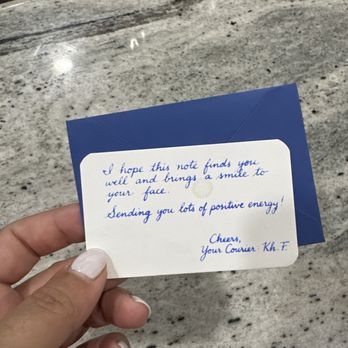 I hope this note finds you
well and brings a smile to
your face.
Sending you lots of positive energy!
Cheers,
Your Courier Kh. F.